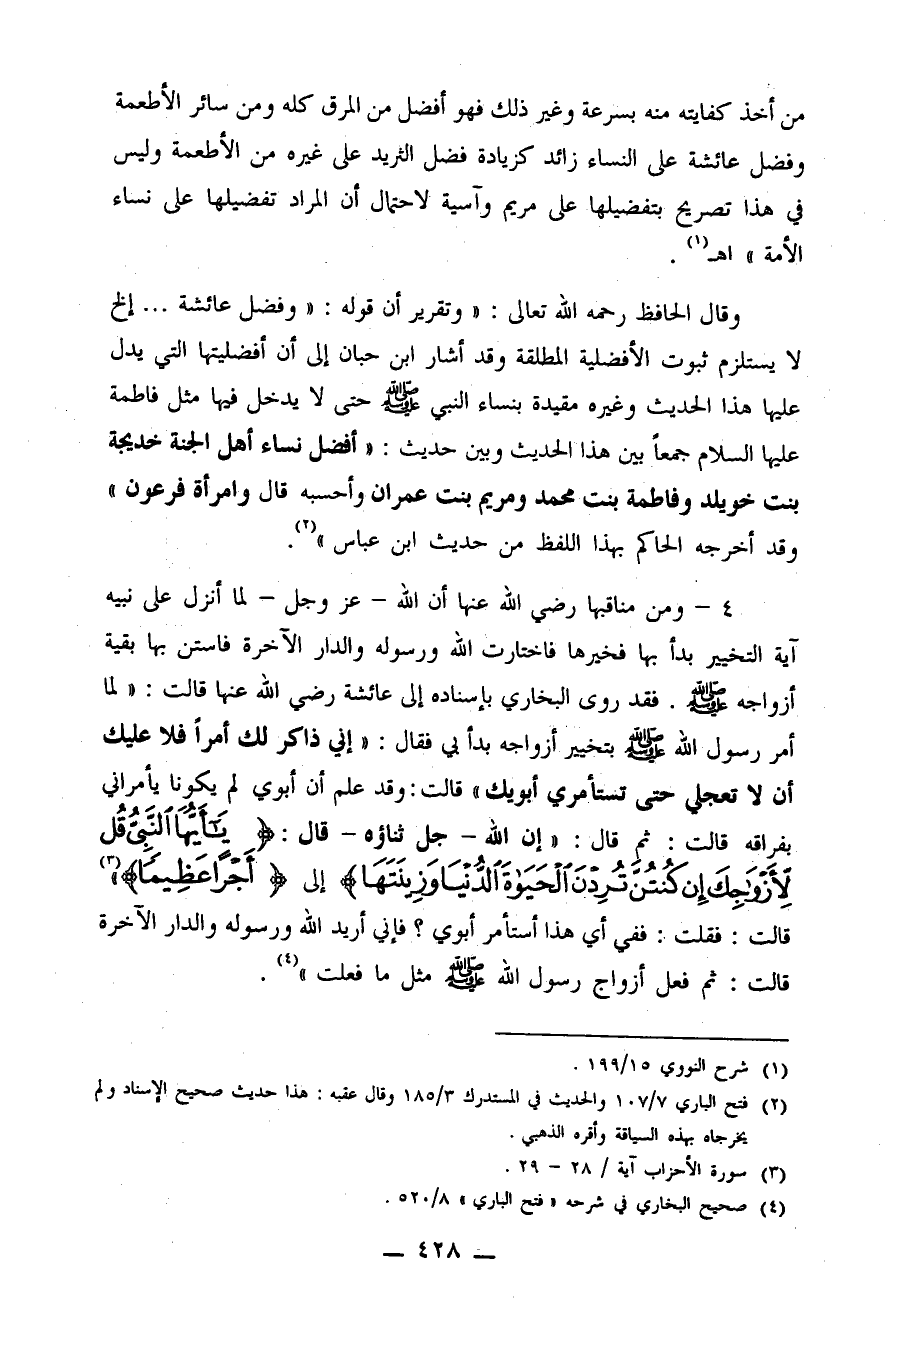 من أخذ كفايته منه بسرعة وغير ذلك فهو أفضل من المرق كله ومن سائر الأطعمة
وفضل عائشة على النساء زائد كزيادة فضل الثريد على غيره من الأطعمة وليس
في هذا تصريح بتفضيلها على مريم وآسية لاحتمال أن المراد تفضيلها على نساء
الأمة » اهـ(١) .
وقال الحافظ رحمه الله تعالى : « وتقرير أن قوله : « وفضل عائشة ... إلخ
لا يستلزم ثبوت الأفضلية المطلقة وقد أشار ابن حبان إلى أن أفضليتها التي يدل
عليها هذا الحديث وغيره مقيدة بنساء النبي ﷺ حتى لا يدخل فيها مثل فاطمة
عليها السلام جمعاً بين هذا الحديث وبين حديث : « أفضل نساء أهل الجنة خديجة
بنت خويلد وفاطمة بنت محمد ومريم بنت عمران وأحسبه قال وامرأة فرعون »
وقد أخرجه الحاكم بهذا اللفظ من حديث ابن عباس »(٢).
٤ – ومن مناقبها رضي الله عنها أن الله – عز وجل – لما أنزل على نبيه
آية التخيير بدأ بها فخيرها فاختارت الله ورسوله والدار الآخرة فاستن بها بقية
أزواجه ﷺ . فقد روى البخاري بإسناده إلى عائشة رضي الله عنها قالت : « لما
أمر رسول الله ﷺ بتخيير أزواجه بدأ بي فقال : « إني ذاكر لك أمراً فلا عليك
أن لا تعجلي حتى تستأمري أبويك » قالت : وقد علم أن أبوي لم يكونا يأمراني
بفراقه قالت : ثم قال : « إن الله – جل ثناؤه – قال : ﴿ يَـٰٓأَيُّهَا ٱلنَّبِىُّ قُل
لِّأَزْوَٰجِكَ إِن كُنتُنَّ تُرِدْنَ ٱلْحَيَوٰةَ ٱلدُّنْيَا وَزِينَتَهَا ﴾ إلى ﴿ أَجْرًا عَظِيمًا ﴾ »(٣)
قالت : فقلت : ففي أي هذا أستأمر أبوي ؟ فإني أريد الله ورسوله والدار الآخرة
قالت : ثم فعل أزواج رسول الله ﷺ مثل ما فعلت »(٤) .
(١) شرح النووي ١٩٩/١٥ .
(٢) فتح الباري ١٠٧/٧ والحديث في المستدرك ١٨٥/٣ وقال عقبه : هذا حديث صحيح الإسناد ولم
يخرجاه بهذه السياقة وأقره الذهبي .
(٣) سورة الأحزاب آية / ٢٨ – ٢٩ .
(٤) صحيح البخاري في شرحه « فتح الباري » ٥٢٠/٨ .
— ٤٢٨ —